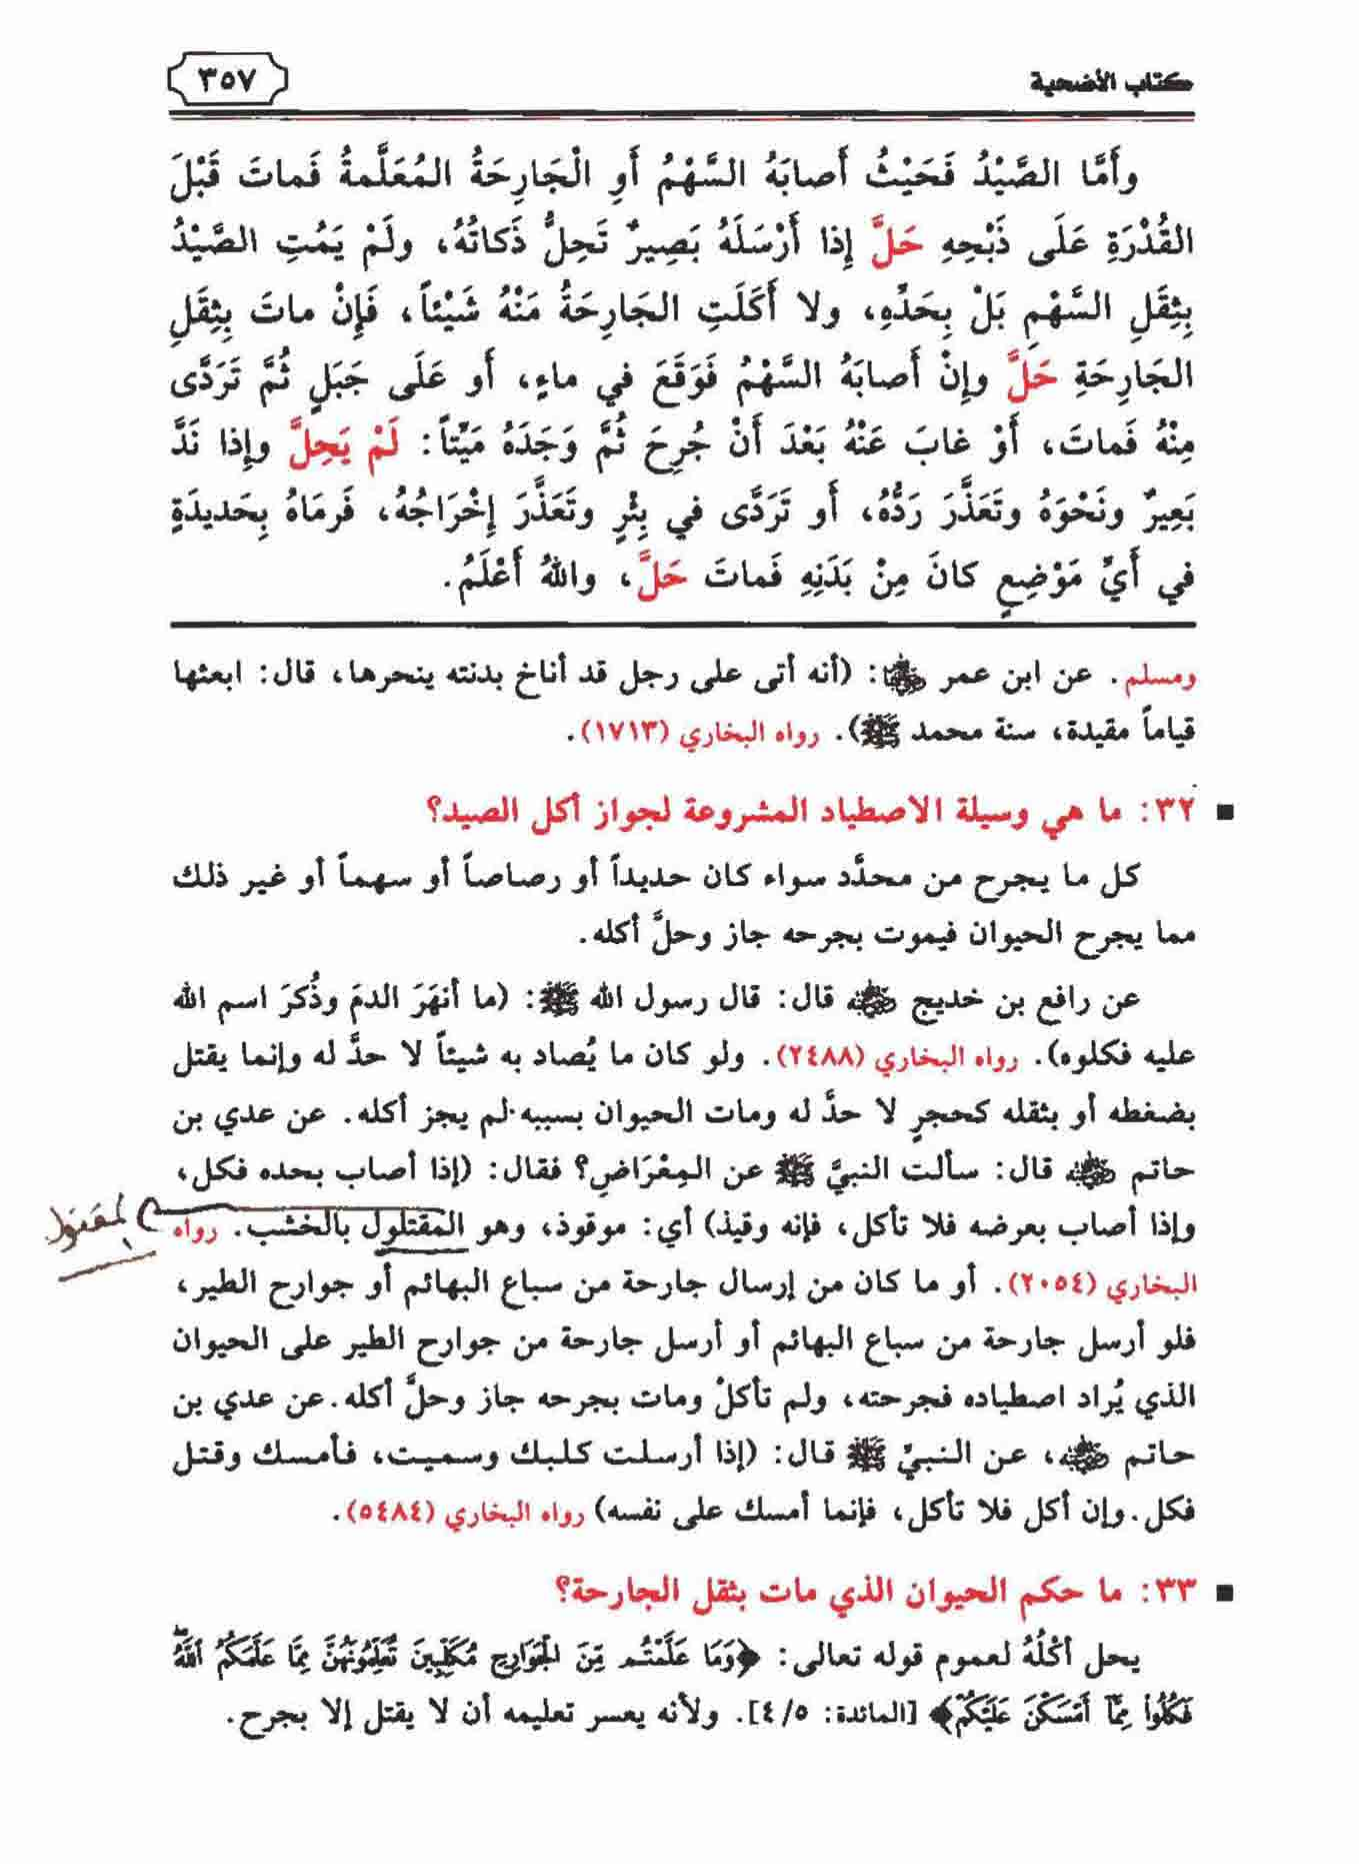 كتاب الأضحية
٣٥٧
وأَمَّا الصَّيْدُ فَحَيْثُ أَصابَهُ السَّهْمُ أَوِ الْجَارِحَةُ المُعَلَّمةُ فَماتَ قَبْلَ
القُدْرَةِ عَلَى ذَبْحِهِ حَلَّ إِذا أَرْسَلَهُ بَصِيرٌ تَحِلُّ ذَكاتُهُ، ولَمْ يَمُتِ الصَّيْدُ
بِثِقَلِ السَّهْمِ بَلْ بِحَدِّهِ، ولا أَكَلَتِ الجَارِحَةُ مَنْهُ شَيْئاً، فَإِنْ ماتَ بِثِقَلِ
الجَارِحَةِ حَلَّ وإِنْ أَصابَهُ السَّهْمُ فَوَقَعَ في ماءٍ، أَو عَلَى جَبَلٍ ثُمَّ تَرَدَّى
مِنْهُ فَماتَ، أَوْ غابَ عَنْهُ بَعْدَ أَنْ جُرِحَ ثُمَّ وَجَدَهُ مَيِّتاً: لَمْ يَحِلَّ وإِذا نَدَّ
بَعِيرٌ ونَحْوَهُ وتَعَذَّرَ رَدُّهُ، أَو تَرَدَّى في بِئْرٍ وتَعَذَّرَ إِخْرَاجُهُ، فَرمَاهُ بِحَديدَةٍ
في أَيِّ مَوْضِعٍ كانَ مِنْ بَدَنِهِ فَماتَ حَلَّ، واللهُ أَعْلَمُ.
ومسلم. عن ابن عمر رضي الله عنهما: (أنه أتى على رجل قد أناخ بدنته ينحرها، قال: ابعثها
قياماً مقيدة، سنة محمد ﷺ). رواه البخاري (١٧١٣).
■ ٣٢: ما هي وسيلة الاصطياد المشروعة لجواز أكل الصيد؟
كل ما يجرح من محدَّد سواء كان حديداً أو رصاصاً أو سهماً أو غير ذلك
مما يجرح الحيوان فيموت بجرحه جاز وحلَّ أكله.
عن رافع بن خديج رضي الله عنه قال: قال رسول الله ﷺ: (ما أنهَرَ الدمَ وذُكرَ اسم الله
عليه فكلوه). رواه البخاري (٢٤٨٨). ولو كان ما يُصاد به شيئاً لا حدَّ له وإنما يقتل
بضغطه أو بثقله كحجرٍ لا حدَّ له ومات الحيوان بسببه لم يجز أكله. عن عدي بن
حاتم رضي الله عنه قال: سألت النبيَّ ﷺ عن المِعْرَاضِ؟ فقال: (إذا أصاب بحده فكل،
وإذا أصاب بعرضه فلا تأكل، فإنه وقيذ) أي: موقوذ، وهو المقتلول بالخشب. رواه
المقتول
البخاري (٢٠٥٤). أو ما كان من إرسال جارحة من سباع البهائم أو جوارح الطير،
فلو أرسل جارحة من سباع البهائم أو أرسل جارحة من جوارح الطير على الحيوان
الذي يُراد اصطياده فجرحته، ولم تأكلْ ومات بجرحه جاز وحلَّ أكله. عن عدي بن
حاتم رضي الله عنه، عن النبيِّ ﷺ قال: (إذا أرسلت كلبك وسميت، فأمسك وقتل
فكل. وإن أكل فلا تأكل، فإنما أمسك على نفسه) رواه البخاري (٥٤٨٤).
■ ٣٣: ما حكم الحيوان الذي مات بثقل الجارحة؟
يحل أكْلُهُ لعموم قوله تعالى: ﴿وَمَا عَلَّمْتُم مِّنَ الْجَوَارِحِ مُكَلِّبِينَ تُعَلِّمُونَهُنَّ مِمَّا عَلَّمَكُمُ اللَّهُ
فَكُلُوا مِمَّا أَمْسَكْنَ عَلَيْكُمْ﴾ [المائدة: ٤/٥]. ولأنه يعسر تعليمه أن لا يقتل إلا بجرح.